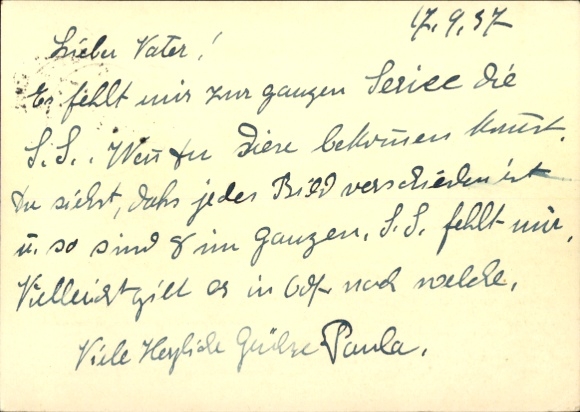 17.9.37
Lieber Vater!
Es fehlt mir zur ganzen Serie die
S.S.. Wenn du diese bekommen kannst.
Du siehst, dahs jedes Bild verschieden ist
u. so sind 8 im ganzen. S.S. fehlt mir,
Vielleicht gilt es in noch welche.
Viele Herzliche Grühse Paula.